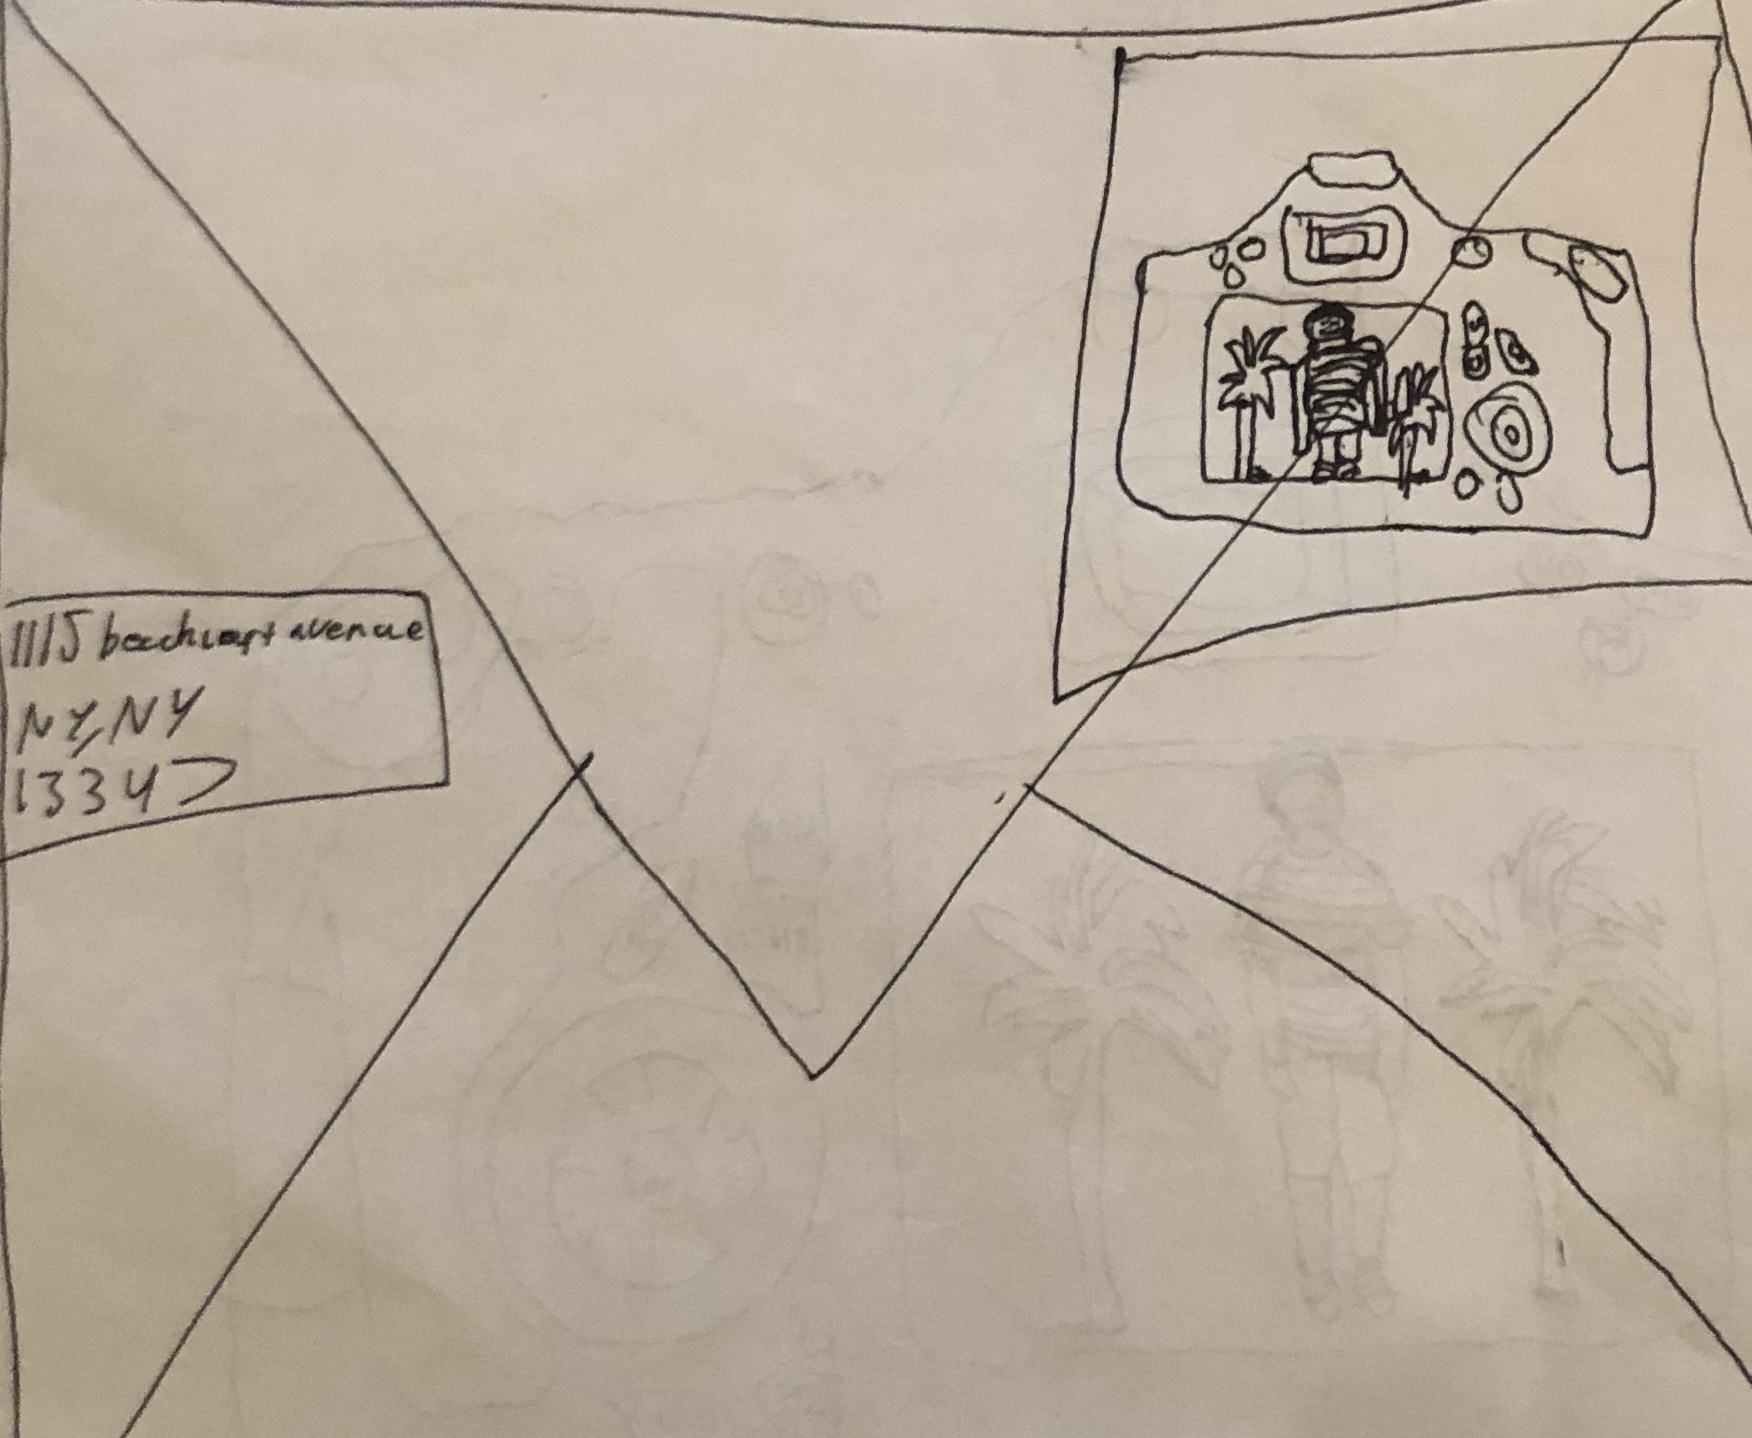 1115 beechcraft avenue
NY, NY
13347